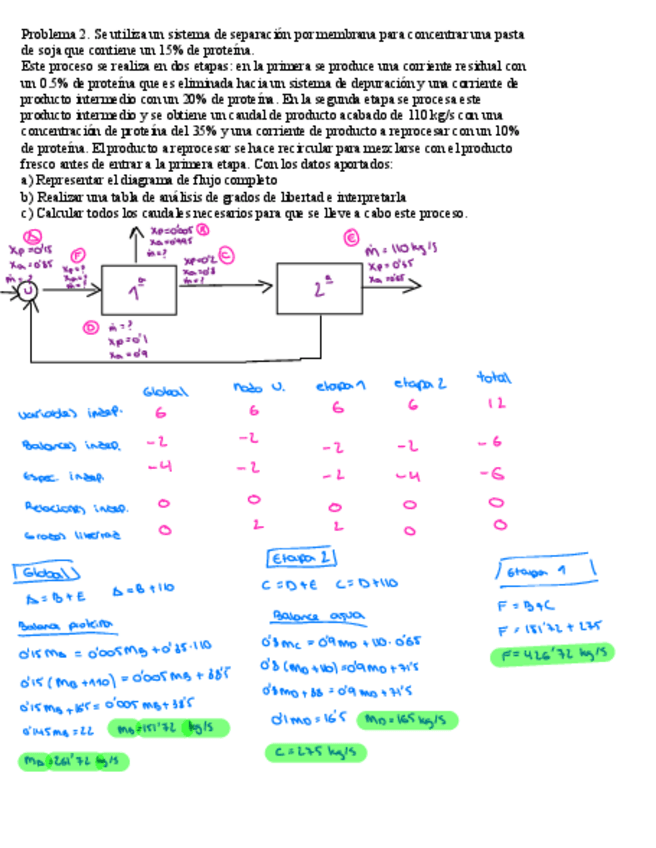 Problema 2. Se utiliza un sistema de separación por membrana para concentrar una pasta
de soja que contiene un 15% de proteína.
Este proceso se realiza en dos etapas: en la primera se produce una corriente residual con
un 0.5% de proteína que es eliminada hacia un sistema de depuración y una corriente de
producto intermedio con un 20% de proteína. En la segunda etapa se procesa este
producto intermedio y se obtiene un caudal de producto acabado de 110 kg/s con una
concentración de proteína del 35% y una corriente de producto a reprocesar con un 10%
de proteína. El producto a reprocesar se hace recircular para mezclarse con el producto
fresco antes de entrar a la primera etapa. Con los datos aportados:
a) Representar el diagrama de flujo completo
b) Realizar una tabla de análisis de grados de libertad e interpretarla
c) Calcular todos los caudales necesarios para que se lleve a cabo este proceso.
A
xp=0'15
xa=0'85
ṁ=?
U
F
xp=?
xa=?
ṁ=?
xp=0'005 B
xa=0'995
ṁ=?
1ª
xp=0'2 C
xa=0'8
ṁ=?
2ª
E
ṁ = 110 kg/s
xp=
xa=0'65
D ṁ=?
xp=0'1
xa=0'9
Global nodo U. etapa 1 etapa 2 total
Variables indep. 6 6 6 6 12
Balances indep. -2 -2 -2 -2 -6
Espec. indep. -4 -2 -2 -4 -6
Relaciones indep. 0 0 0 0 0
Grados libertad 0 2 2 0 0
Global
A = B + E A = B + 110
Balance proteína
0'15 mA = 0'005 mB + 0'35·110
0'15 (mB + 110) = 0'005 mB + 38'5
0'15 mB + 16'5 = 0'005 mB + 38'5
0'145 mB = 22 mB = 151'72 kg/s
mA = 261'72 kg/s
Etapa 2
C = D + E C = D + 110
Balance agua
0'8 mC = 0'9 mD + 110·0'65
0'8 (mD + 110) = 0'9 mD + 71'5
0'8 mD + 88 = 0'9 mD + 71'5
0'1 mD = 16'5 mD = 165 kg/s
C = 275 kg/s
Etapa 1
F = B + C
F = 151'72 + 275
F = 426'72 kg/s